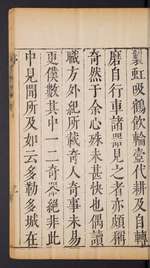 製虹吸鶴飲輪壺代耕及自轉
磨自行車諸器見之者亦頗稱
奇然于余心殊未甚快也偶讀
職方外紀所載奇人奇事未易
更僕數其中一二奇器絕非此
中見聞所及如云多勒多城在